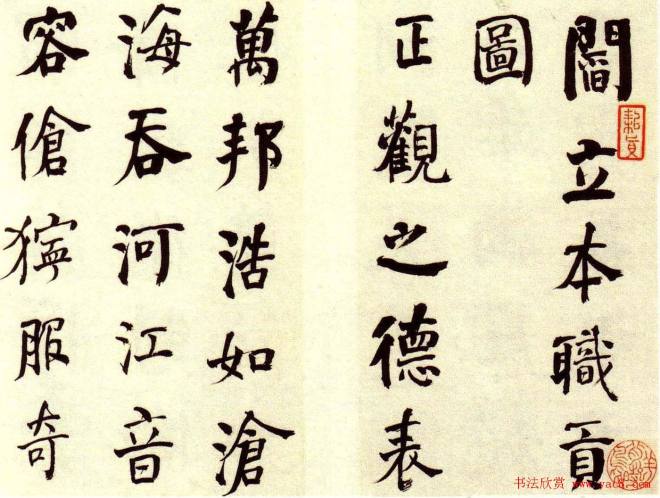 閻立本職貢
圖
正觀之德来
萬邦浩如滄
海吞河江音
容傖獰服奇
书法欣赏 www.yac8.com